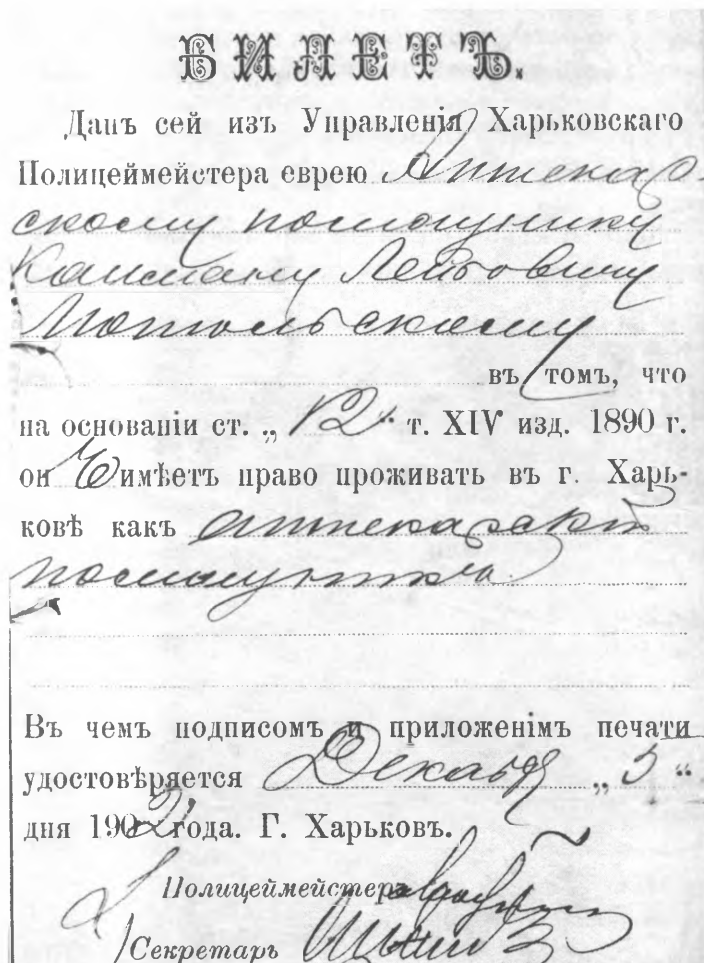 БИЛЕТЪ.
Данъ сей изъ Управленія Харьковскаго
Полицеймейстера еврею Аптекар-
скому помощнику
Калману Лейбовичу
Мотольскому
въ томъ, что
на основаніи ст. „ 12 т. XIV изд. 1890 г.
он имѣетъ право проживать въ г. Харь-
ковѣ какъ аптекарскій
помощникъ
Въ чемъ подписомъ и приложенімъ печати
удостовѣряется Декабря „ 3 “
дня 1902 года. Г. Харьковъ.
Полицеймейстеръ
Секретарь